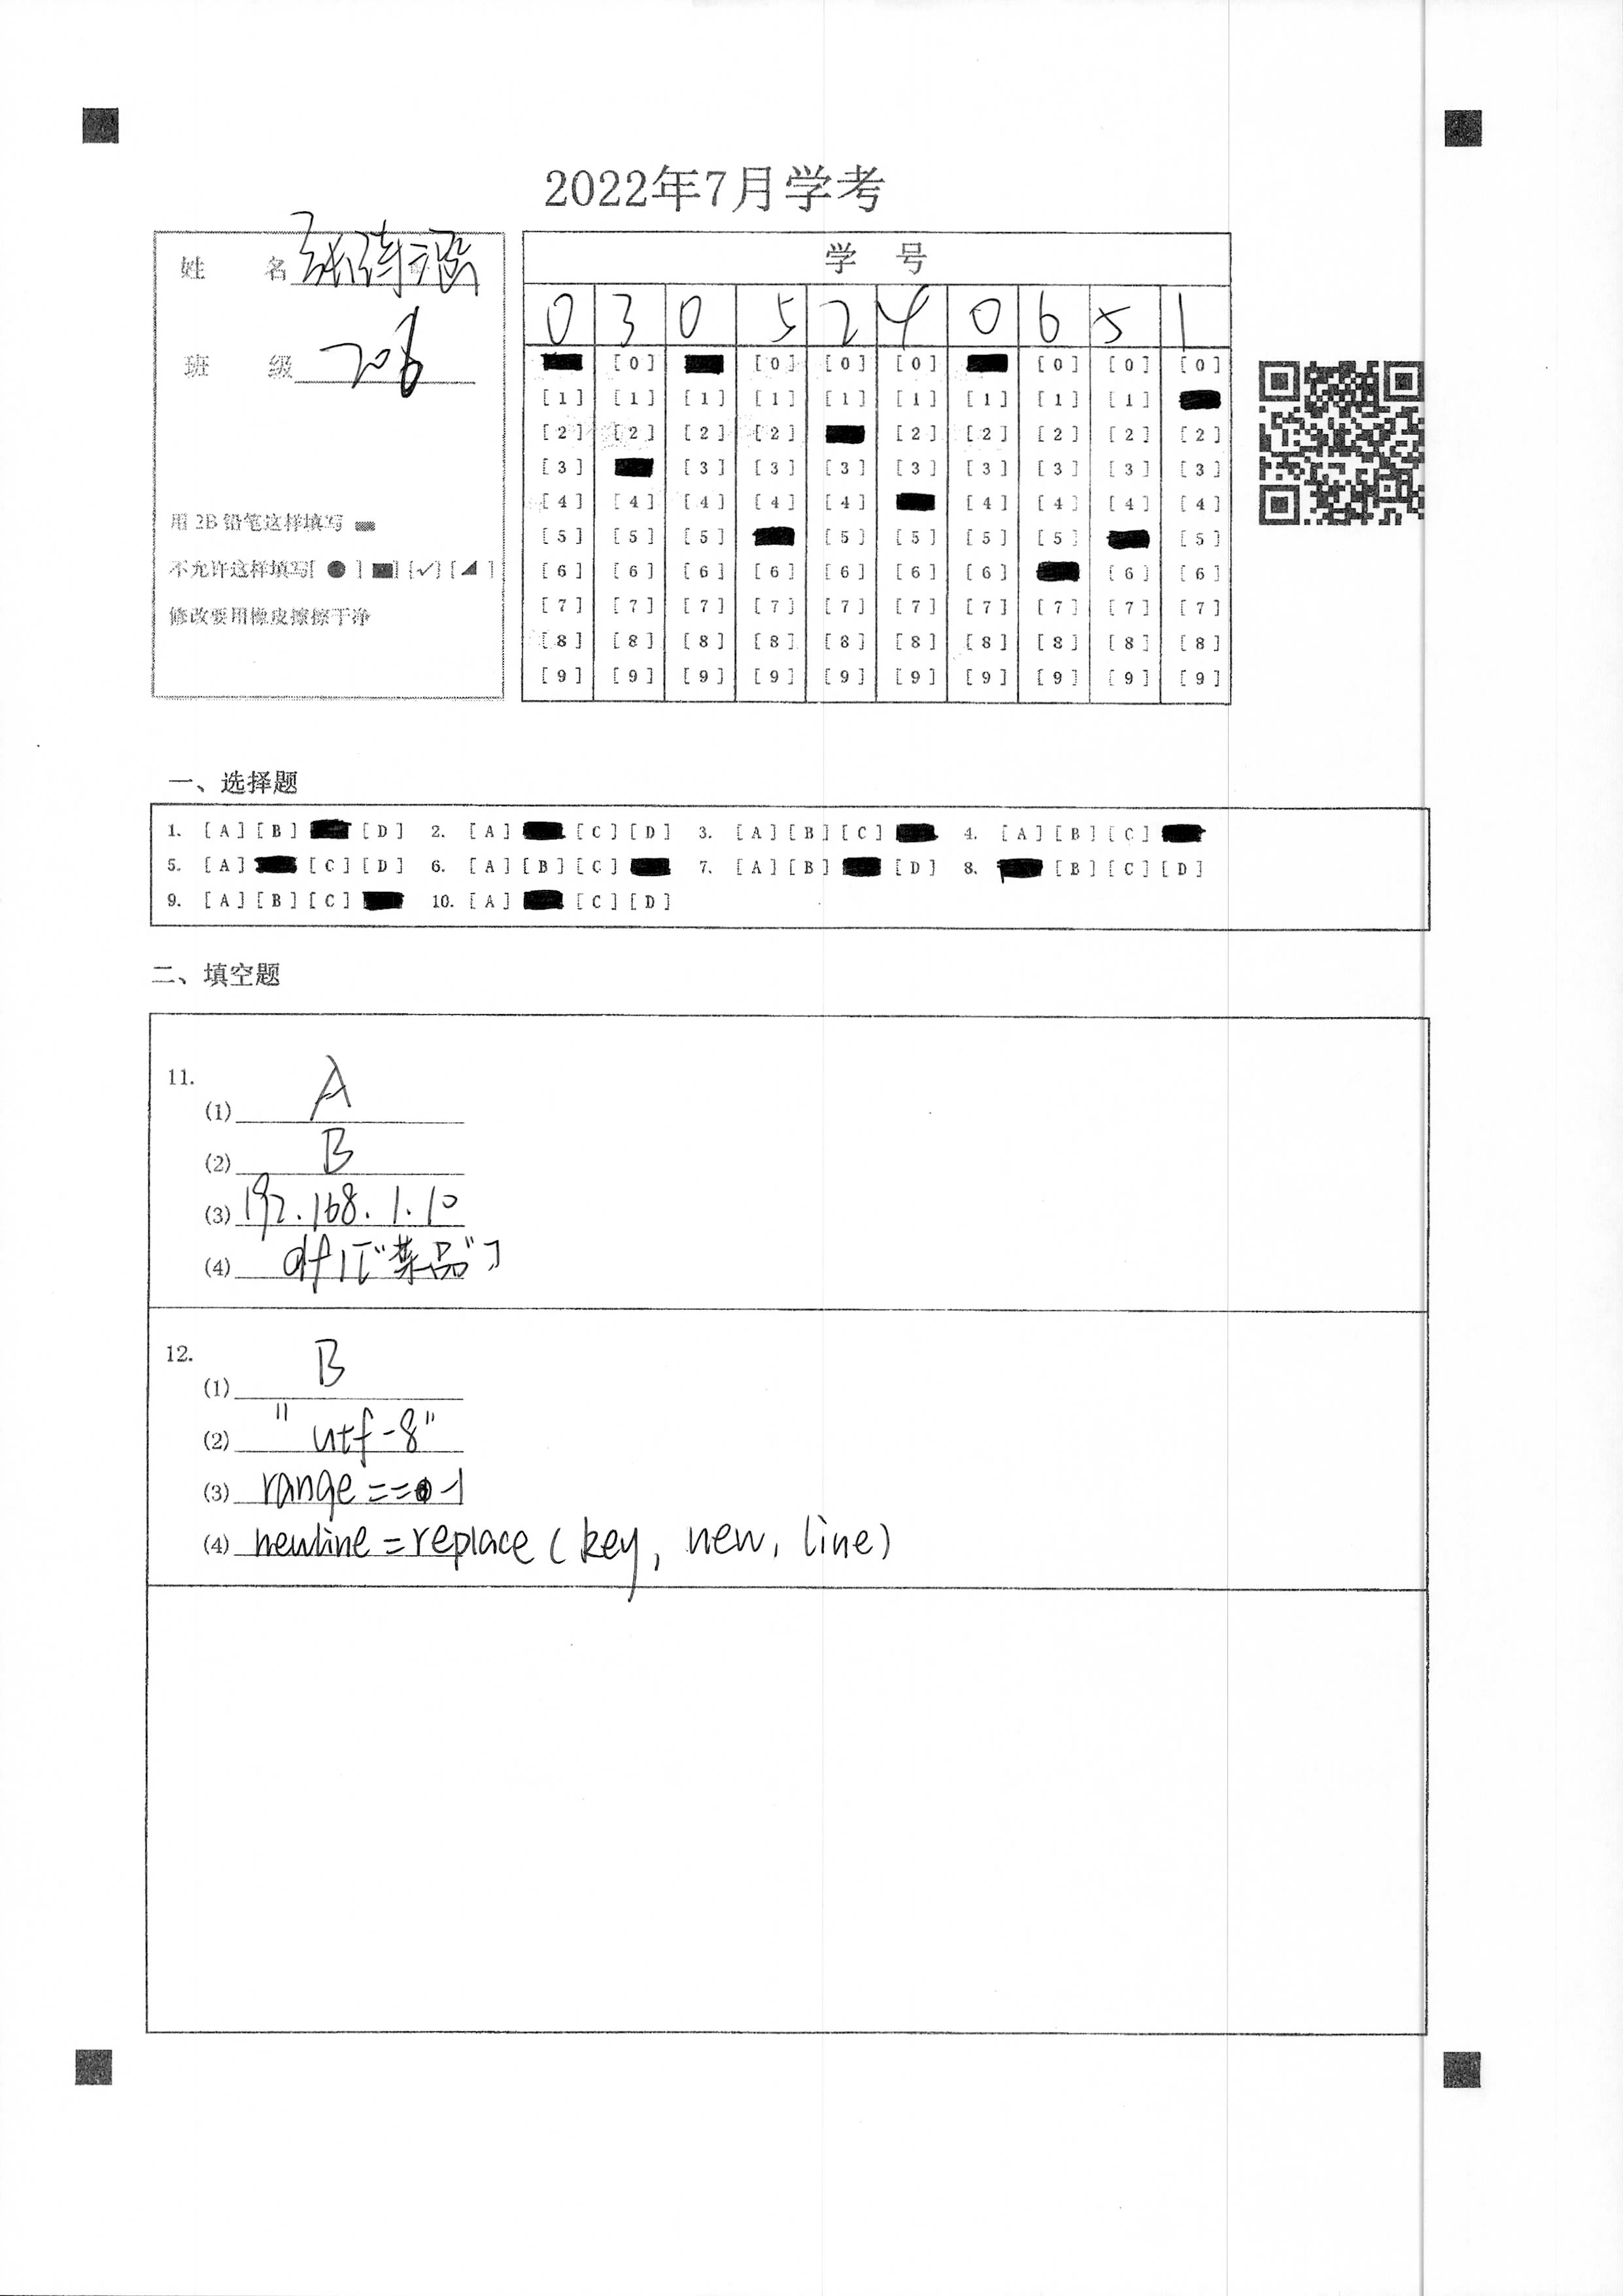 2022年7月学考
姓 名 张
班 级 206
用 2B 铅笔这样填写
不允许这样填写[ ● ] ■] [✓] [◢ ]
修改要用橡皮擦擦干净
学 号
0 3 0 5 2 4 0 6 5 1
[0] [0] [0] [0] [0] [0]
[1] [1] [1] [1] [1] [1] [1] [1] [1]
[2] [2] [2] [2] [2] [2] [2] [2] [2]
[3] [3] [3] [3] [3] [3] [3] [3] [3]
[4] [4] [4] [4] [4] [4] [4] [4] [4]
[5] [5] [5] [5] [5] [5] [5] [5]
[6] [6] [6] [6] [6] [6] [6] [6] [6]
[7] [7] [7] [7] [7] [7] [7] [7] [7] [7]
[8] [8] [8] [8] [8] [8] [8] [8] [8] [8]
[9] [9] [9] [9] [9] [9] [9] [9] [9] [9]
一、选择题
1. [A] [B] [D] 2. [A] [C] [D] 3. [A] [B] [C] 4. [A] [B] [C]
5. [A] [C] [D] 6. [A] [B] [C] 7. [A] [B] [D] 8. [B] [C] [D]
9. [A] [B] [C] 10. [A] [C] [D]
二、填空题
11.
(1) A
(2) B
(3) 192.168.1.10
(4) df1["菜品"]
12.
(1) B
(2) "utf-8"
(3) range==-1
(4) newline=replace(key, new, line)